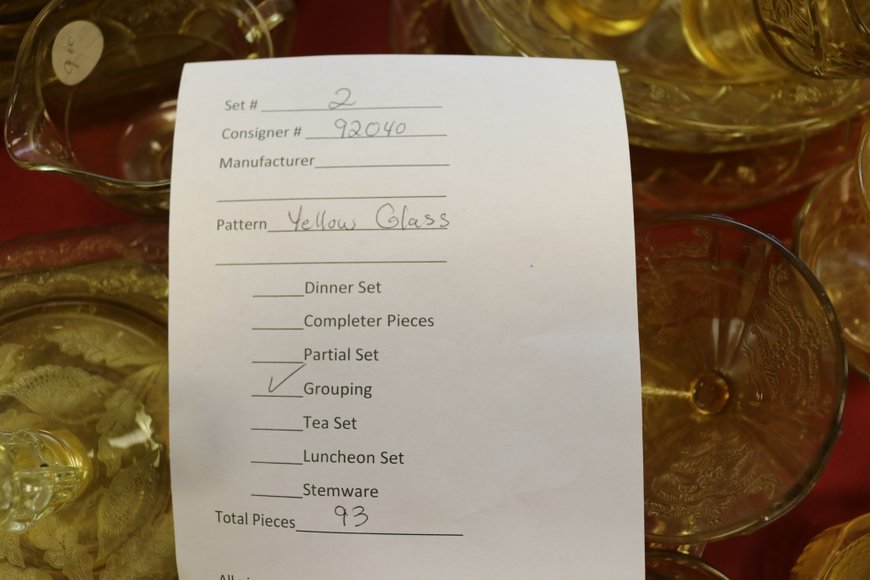 9.00
Set # 2
Consigner # 92040
Manufacturer
Pattern Yellow Glass
Dinner Set
Completer Pieces
Partial Set
✓ Grouping
Tea Set
Luncheon Set
Stemware
Total Pieces 93